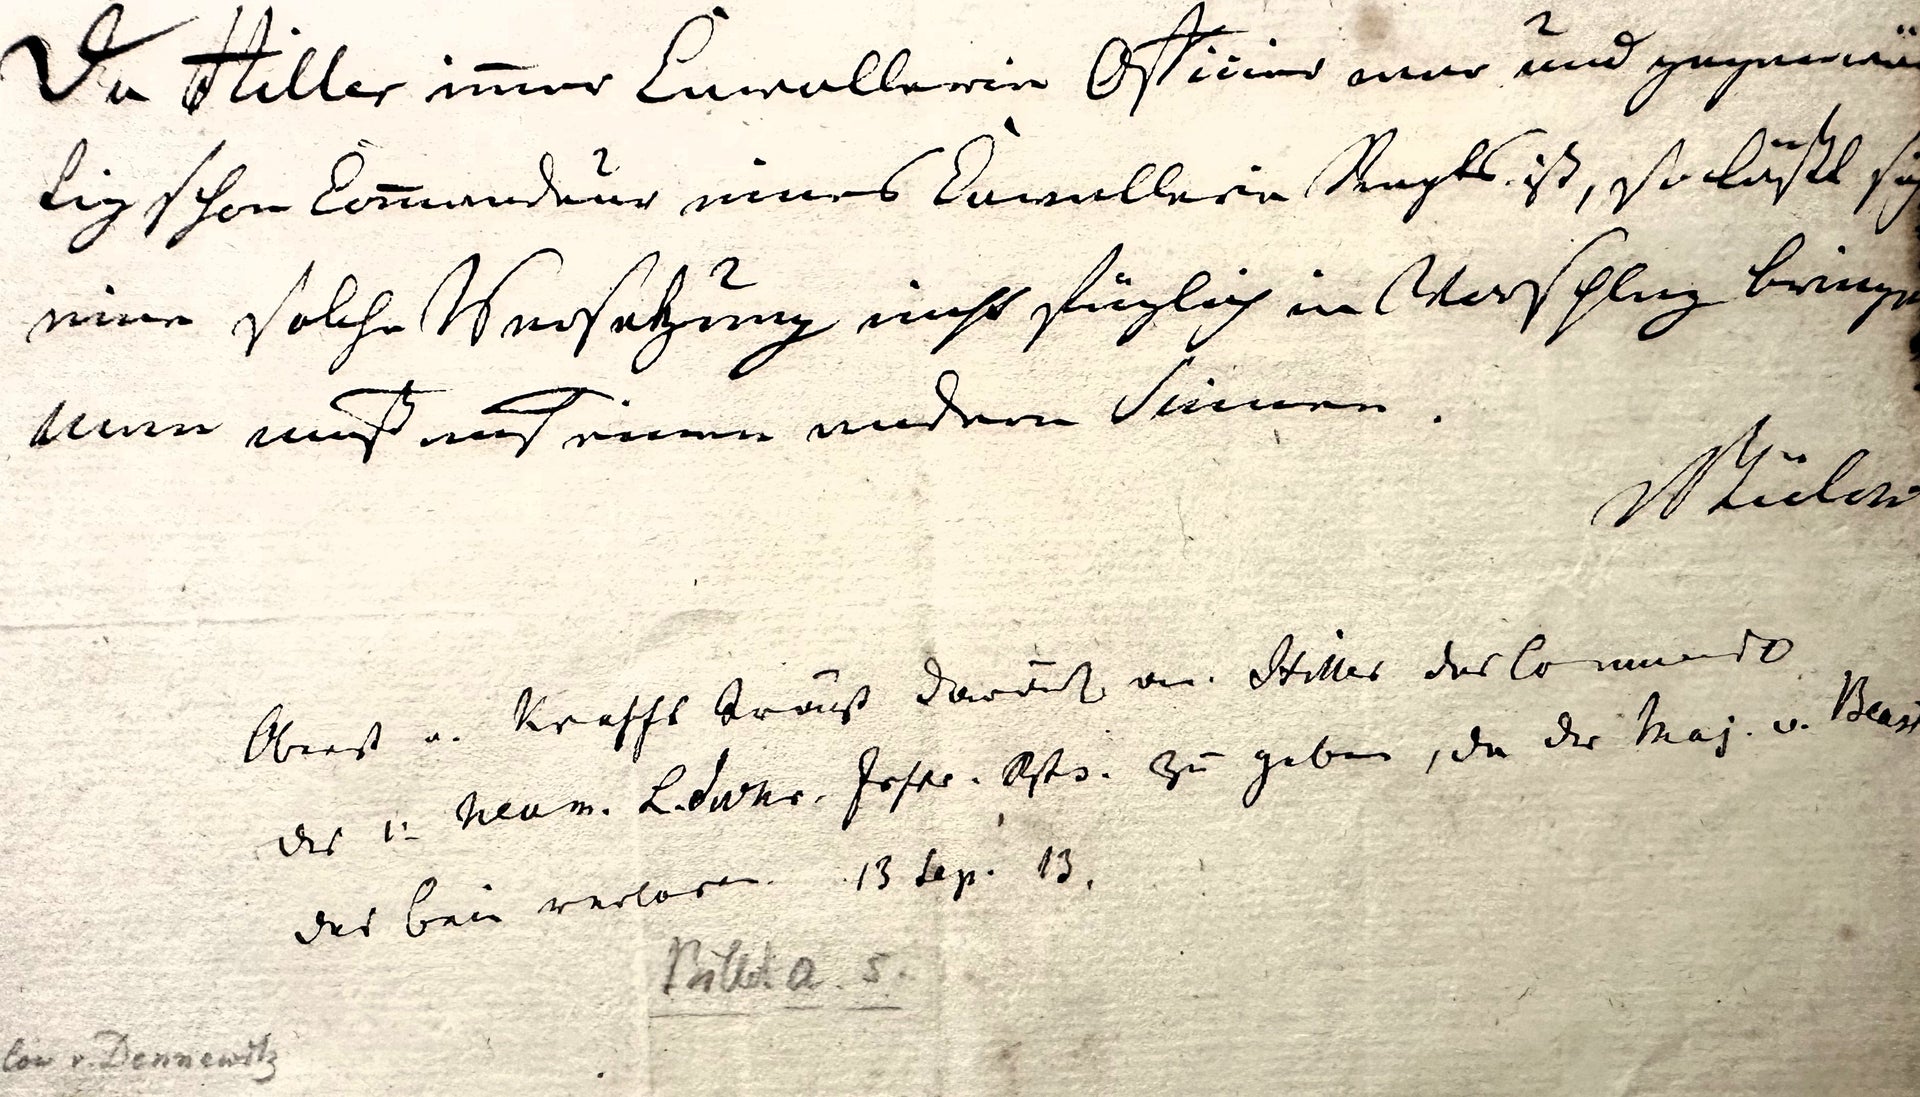 Da Hiller im̅er Cavallerie Officier war und gegenwär
tig schon Com̅andeur eines Cavallerie Regts. ist, so läßt sich
eine solche Versetzung nicht füglich in Vorschlag bringen
man muß auf einen andern Sinnen.
Bülow
Oberst v. Krafft trägt darauf an. Hiller das Commando
des Neum. L.dwhr. Inftr. Rgts. zu geben, da der Maj. v.
das bein verloren. 13 Sep. 13.
Billet a. 5.
low v. Dennewitz